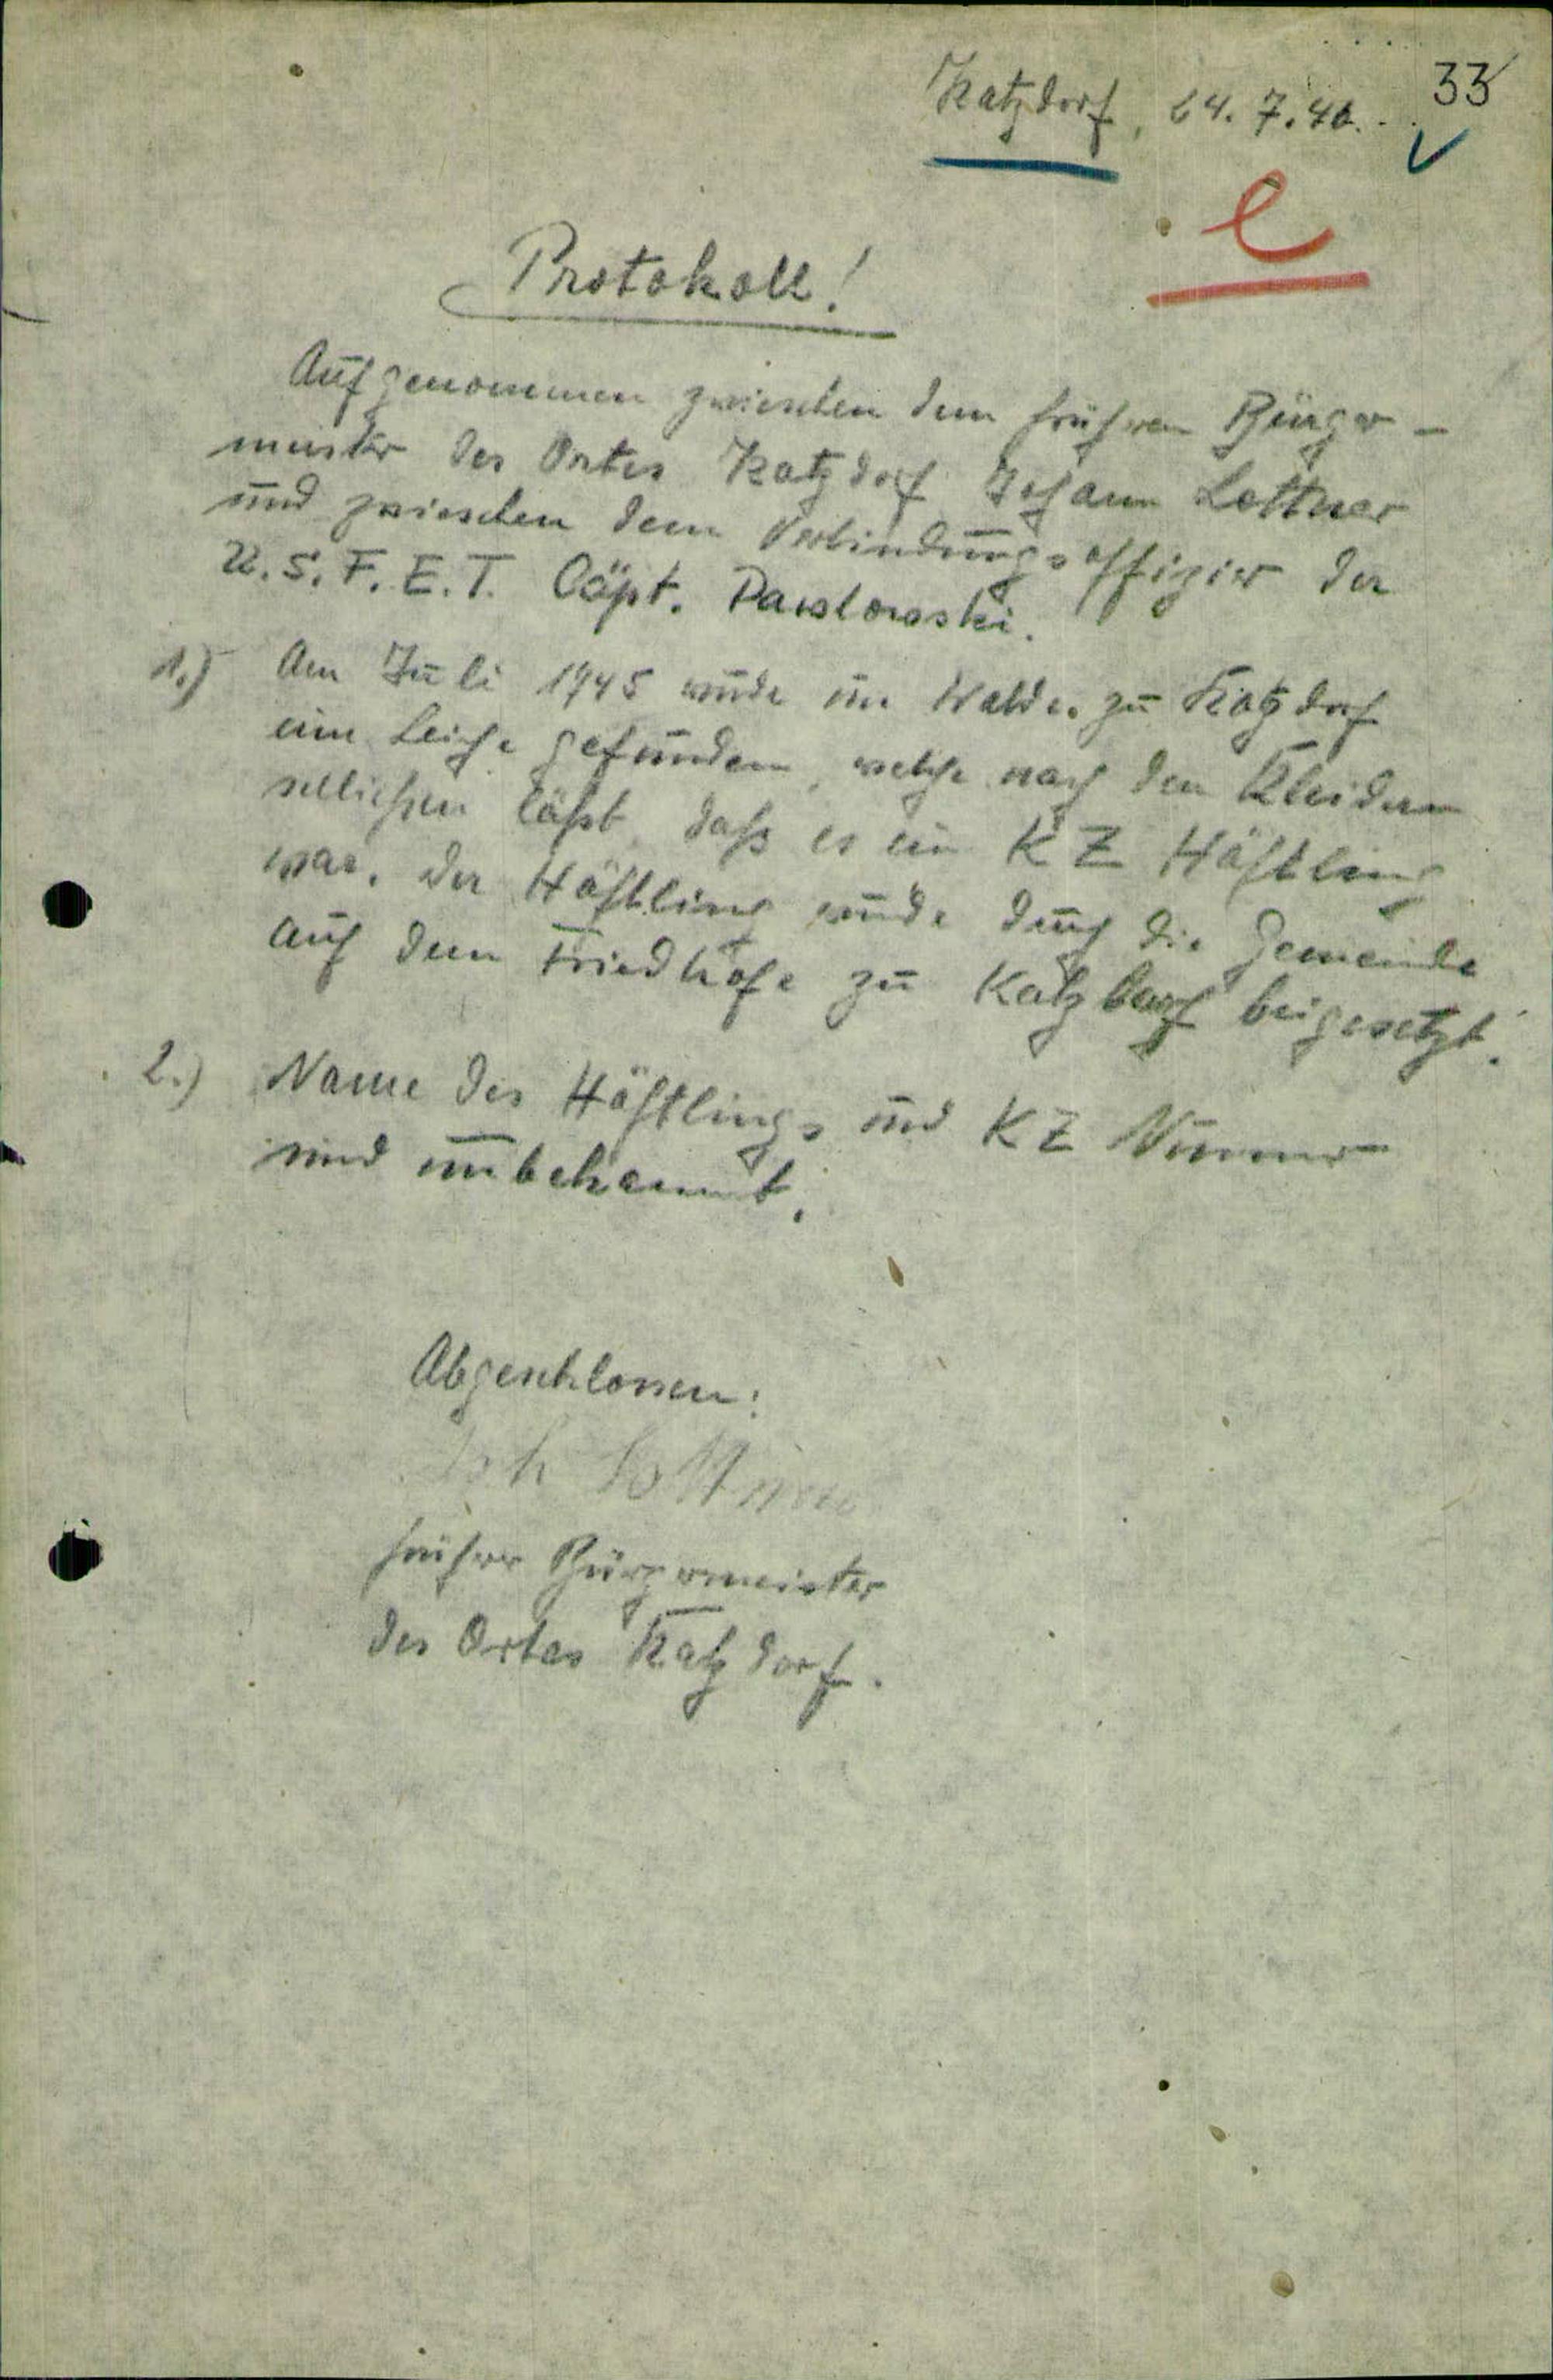 33
Katzdorf, 24.7.46.
e
Protokoll!
Aufgenommen zwischen dem frühren Bürger-
meister des Ortes Katzdorf Johann Lottner
und zwischen dem Verbindungsoffizier der
U.S.F.E.T. Cäpt. Pawlowski.
1.) Am Juli 1945 wurde im Walde zu Katzdorf
eine Leiche gefunden, welche nach den Kleidern
schliessen läßt, daß es ein KZ Häftling
war. Der Häftling wurde durch die Gemeinde
auf dem Friedhofe zu Katzdorf beigesetzt.
2.) Name des Häftlings und KZ Nummer
sind unbekannt.
Abgeschlossen:
Joh Lottner
früherer Bürgermeister
des Ortes Katzdorf.